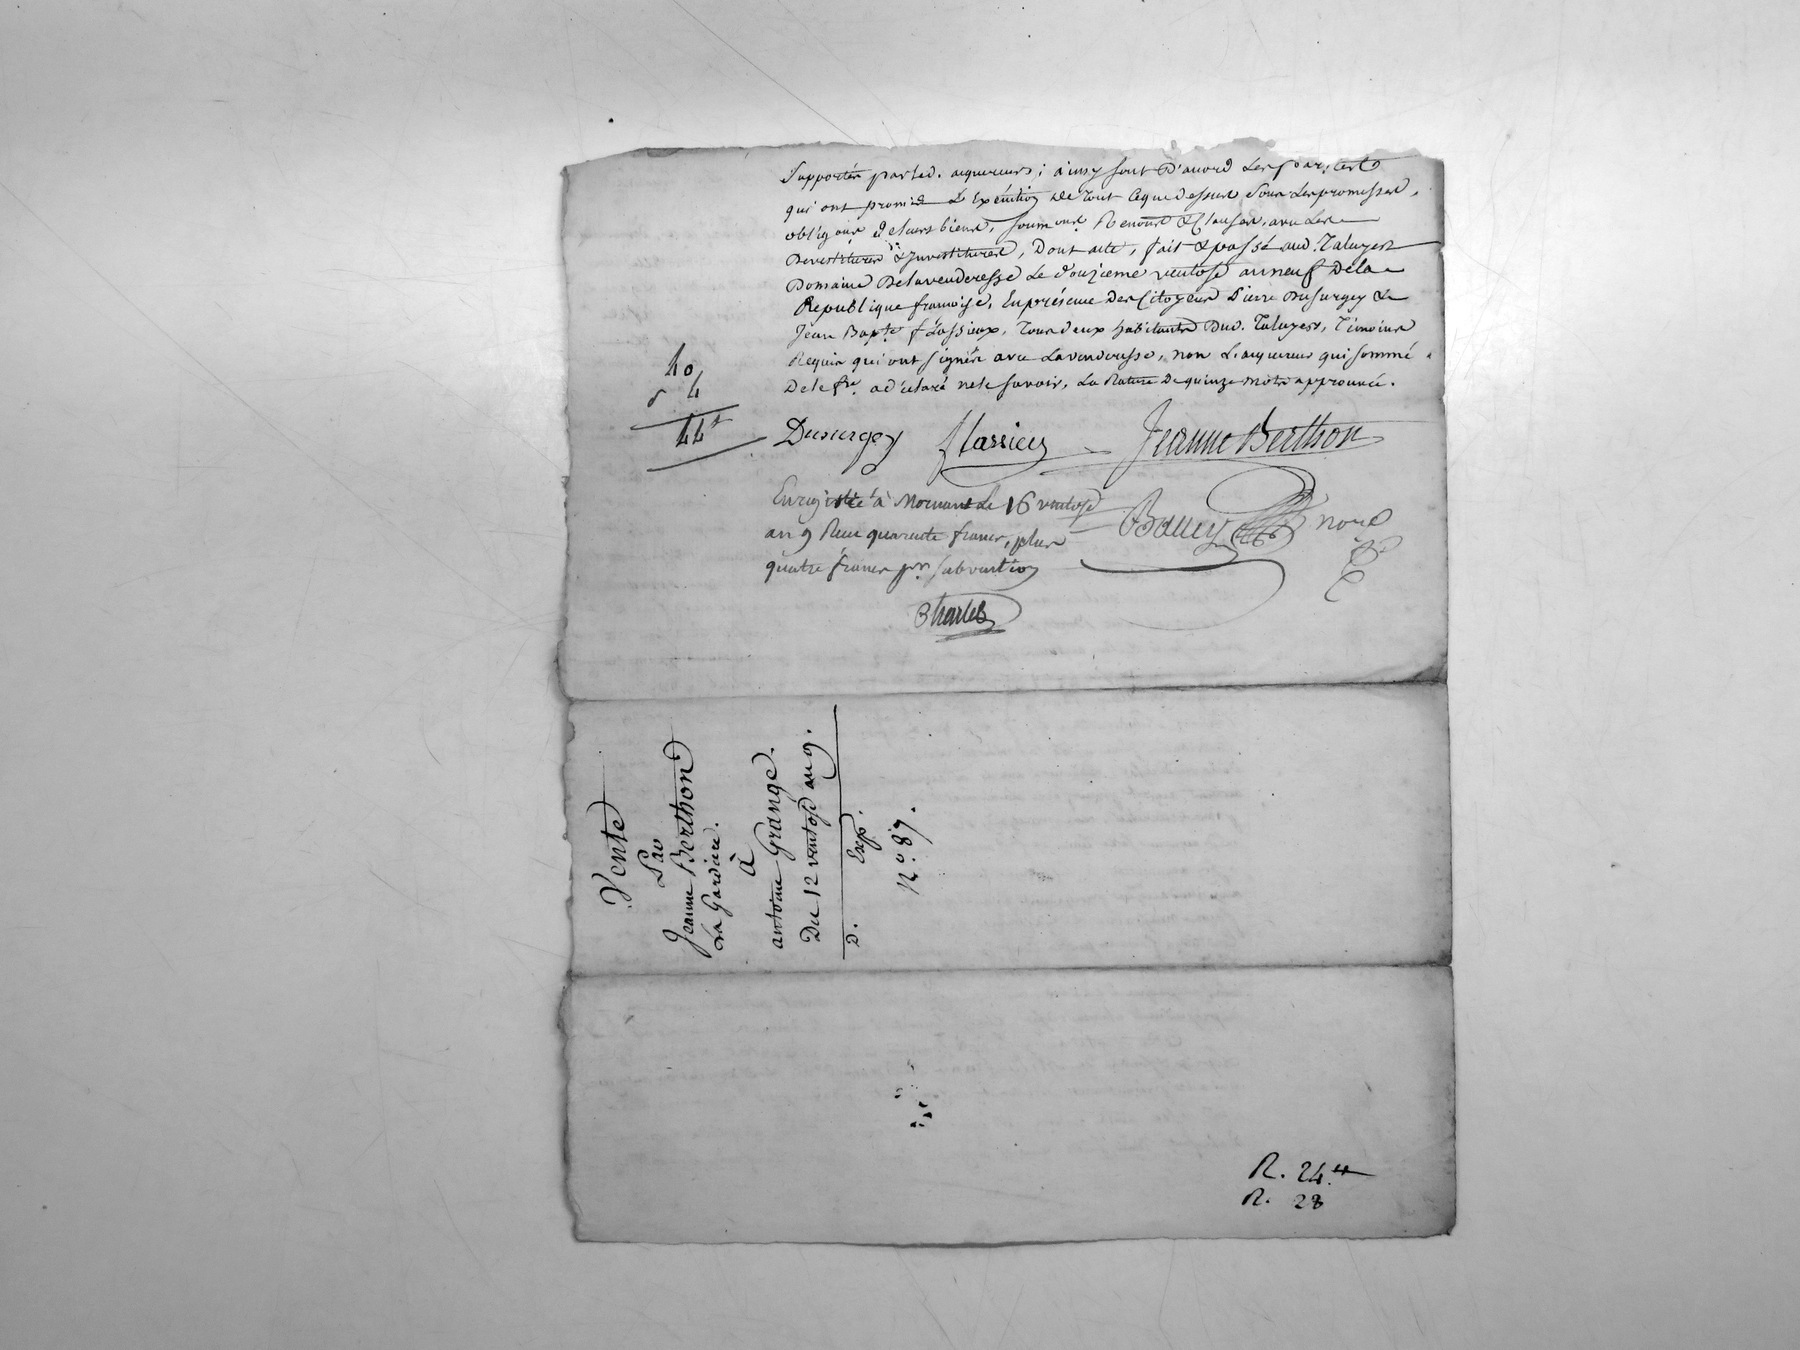 Supportés par led. aquereurs; ainsy sont D'acord Les parties
qui ont promis L'Exécution de Tout Ceque dessus Sous Les promesses,
obligaons de leurs biens, soumons Renons & Clauses, avec Les
Devestitures & Investitures, Dont acte, fait & passé aud. Taluyers
Domaine De la venderesse Le Douzieme ventose an neuf De la
Republique francoise, En présence Des Citoyens Pierre Dusurgey &
Jean Bapte. flassieux, Tous deux habitants Dud. Taluyers, Témoins
Requis qui ont signés avec La venderesse, non L'aquereur qui sommé
De le fre. a déclaré ne le savoir, La Rature De quinze mots approuvée.
40
s 4
44
Dusurgey flassieux Jeanne Berthon
Enregistré à Mornant Le 16 ventose
an 9 Recu quarante francs, plus
quatre francs pr. subvention
Charles
nore
Vente
Par
Jeanne Berthon
La Gardiere.
à
antoine Grange.
Du 12 ventose an 9.
D. Exp.
N.º 87.
R. 24.tt
R. 28